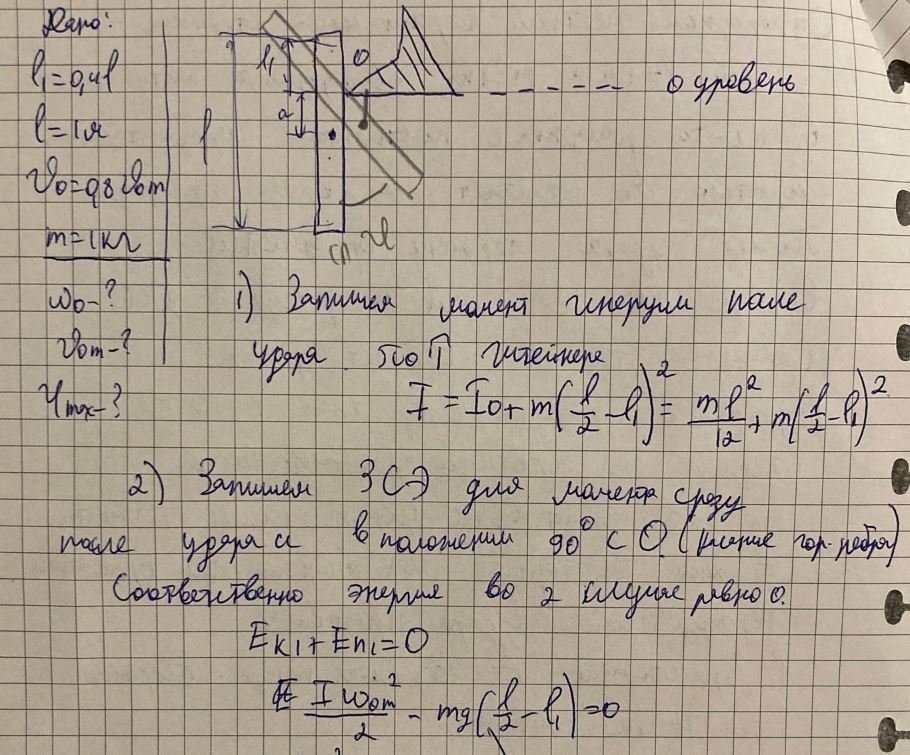 Дано:
l₁=0,4l
l=1м
V₀=0,8V₀m
m=1кг
ω₀-?
V₀m-?
φmx-?
l₁
O
a
l
φ
0 уровень
1) Запишем момент инерции после
удара по Т Штейнера
I = I₀ + m(l/2 - l₁)² = ml²/12 + m(l/2 - l₁)²
2) Запишем ЗСЭ для момента сразу
после удара и в положении 90° с О. (касание гор. ребра)
Соответственно энергия во 2 случае равно 0.
Eк₁+Eп₁=0
Iω₀m²/2 - mg(l/2 - l₁)=0